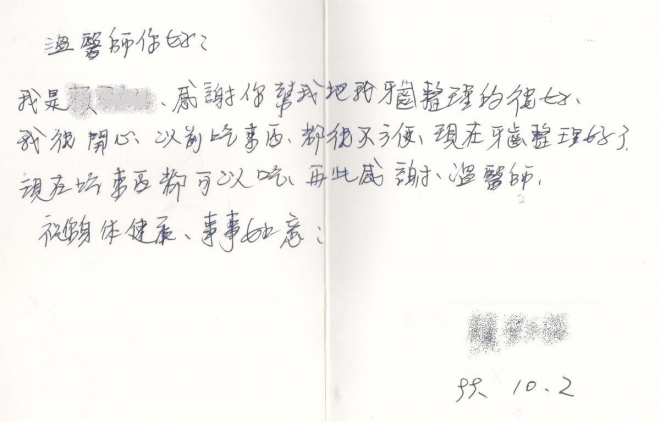 溫醫師你好:
我是、感謝你幫我把我牙齒整理的很好、
我很開心、以前吃東西、都很不方便、現在牙齒整理好了
現在吃東西都可以吃、再此感謝、溫醫師.
祝你身体健康、事事如意:
99. 10. 2